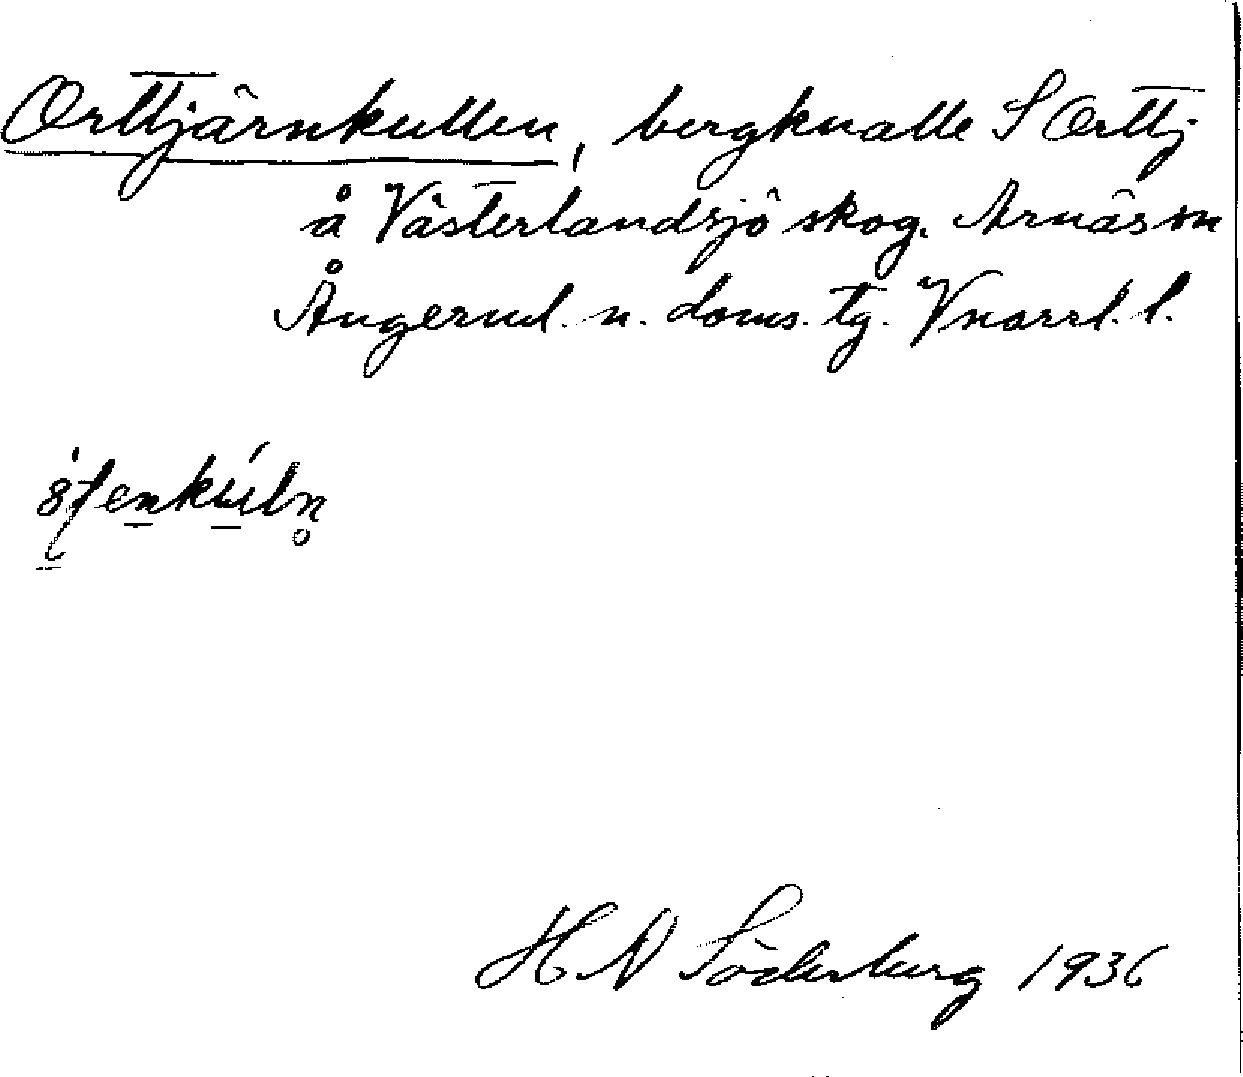 Orttjärnkullen, bergknalle S Orttj
å Västerlandsjö skog. Arnäs sn
Ångerml. n. doms. tg. Vnorrl. l.
H N Söderberg 1936